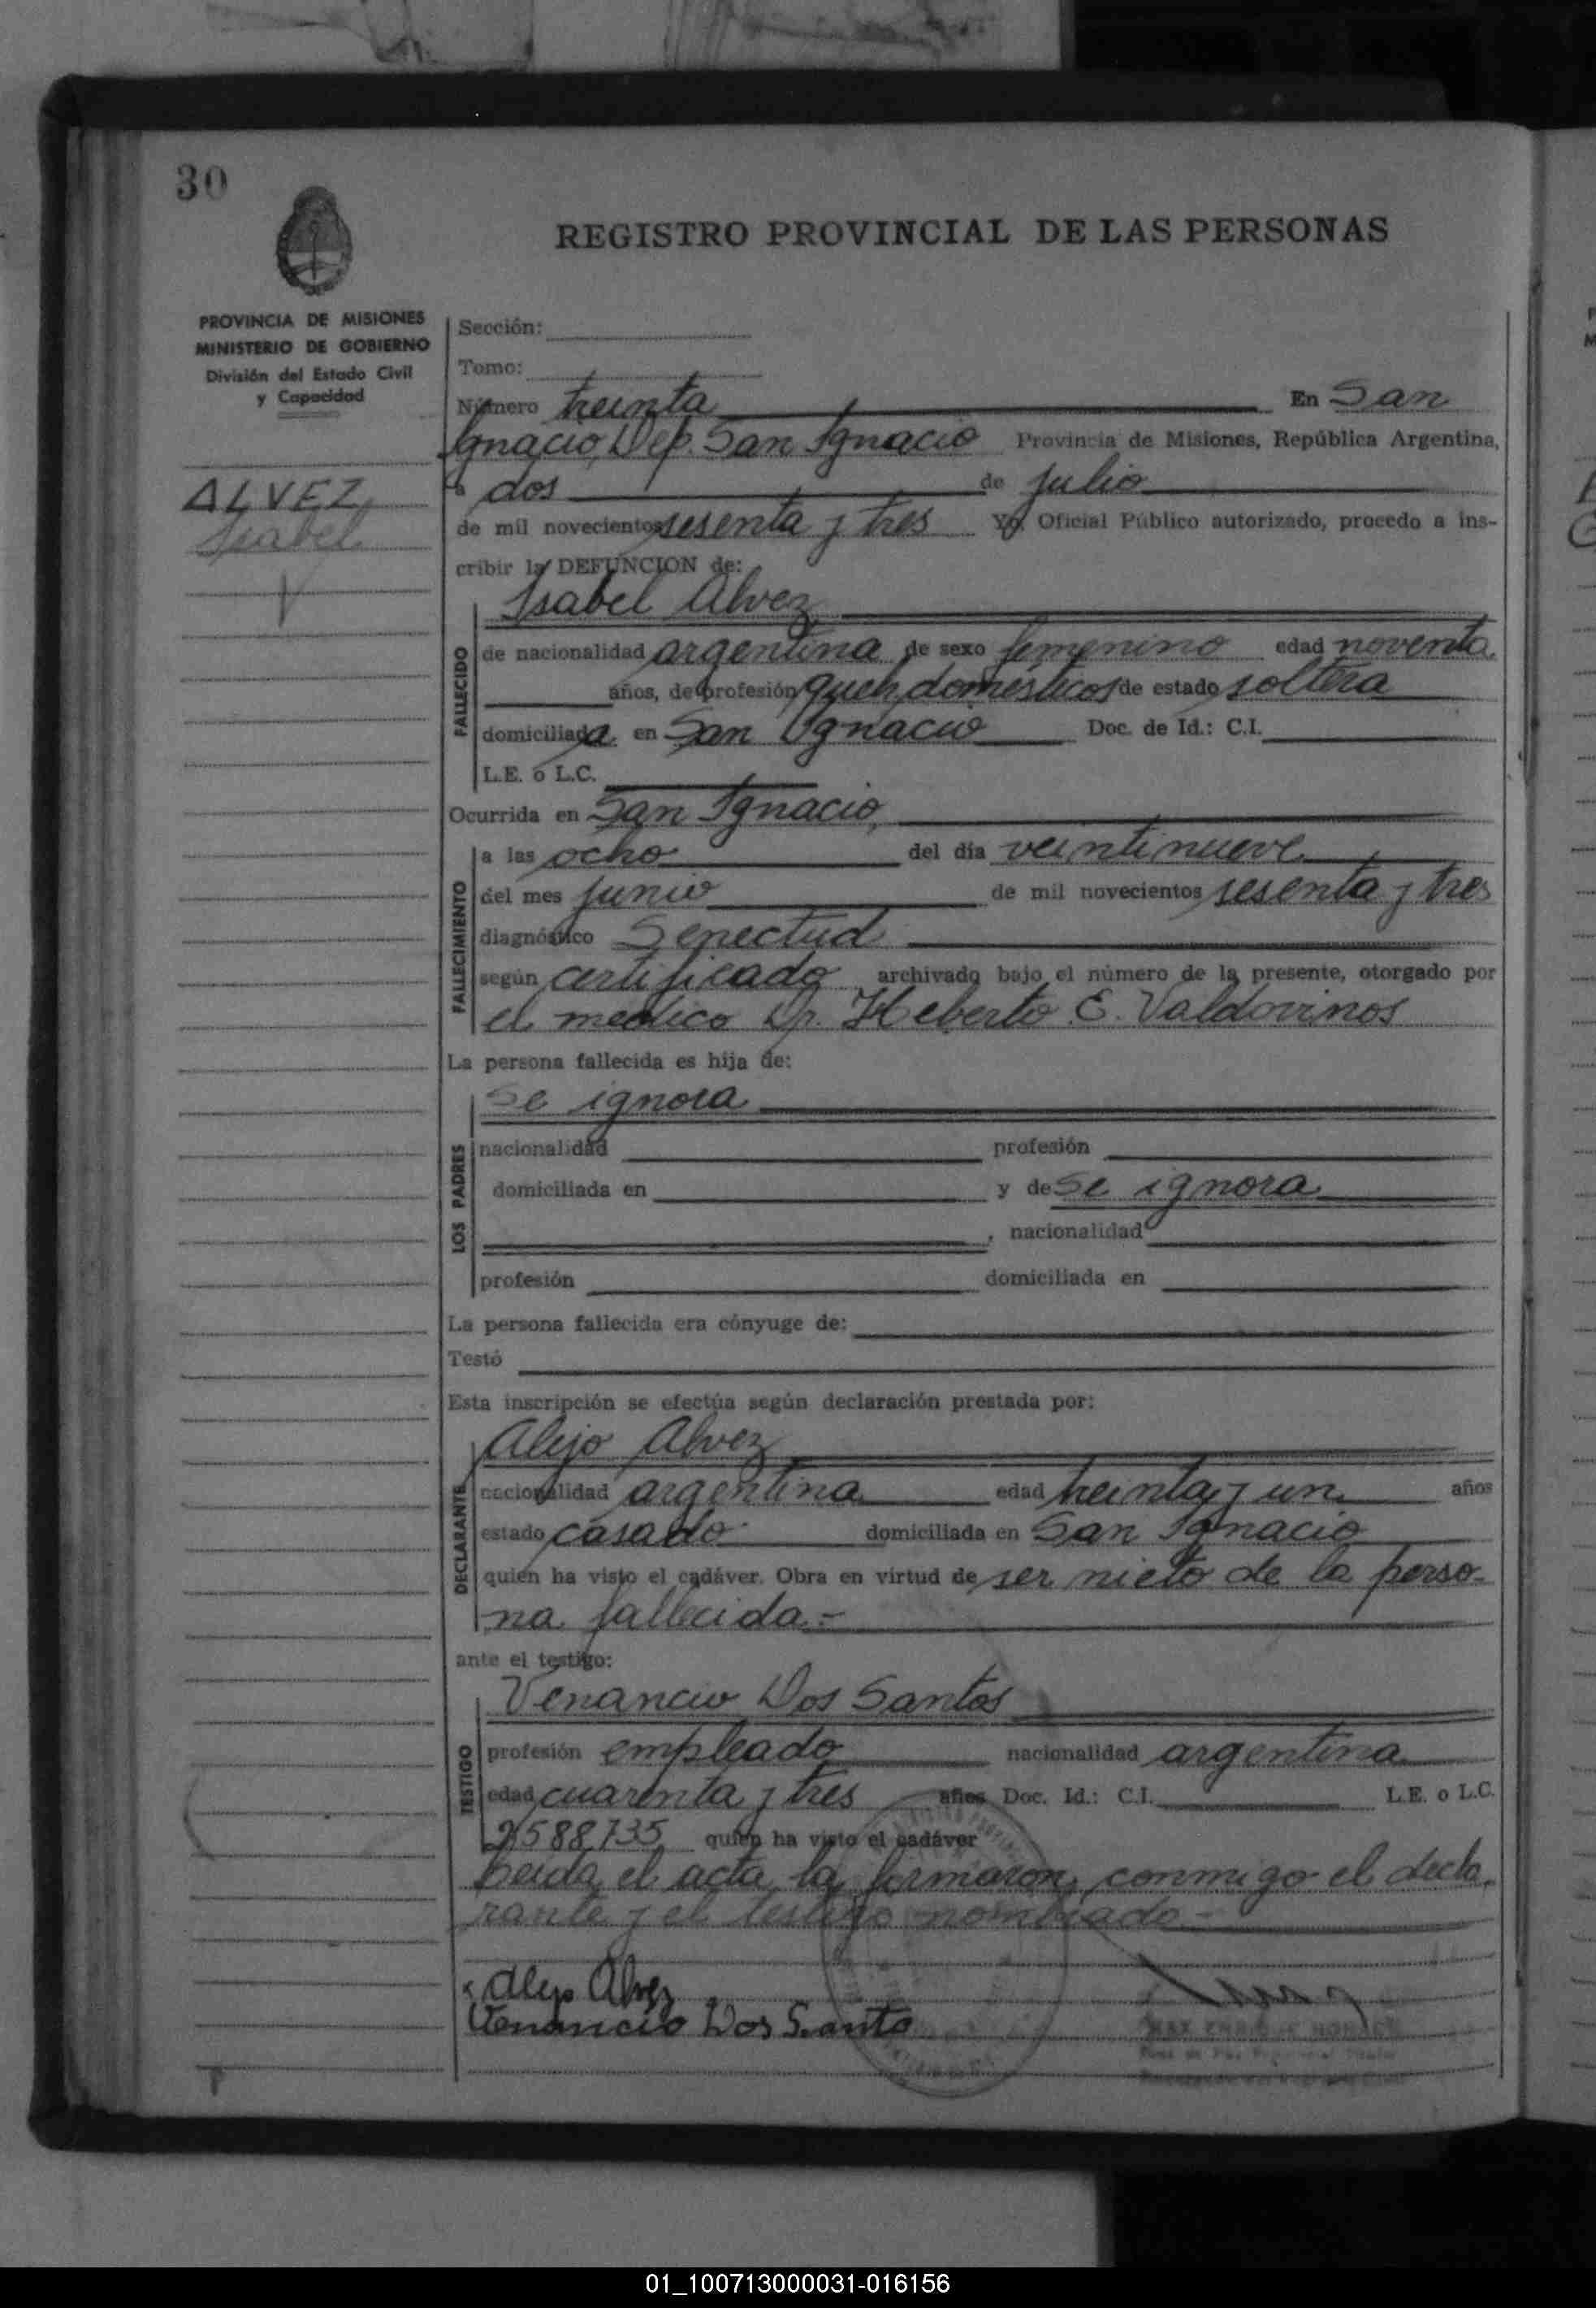 30
REGISTRO PROVINCIAL DE LAS PERSONAS
PROVINCIA DE MISIONES
MINISTERIO DE GOBIERNO
División del Estado Civil
y Capacidad
ALVEZ
Isabel
Sección:
Tomo:
Número treinta En San
Ignacio, Dep. San Ignacio Provincia de Misiones, República Argentina,
a dos de julio
de mil novecientos sesenta y tres Yo, Oficial Público autorizado, procedo a ins-
cribir la DEFUNCION de:
Isabel Alvez
FALLECIDO
de nacionalidad argentina de sexo femenino edad noventa
años, de profesión queh. domésticos de estado soltera
domiciliada en San Ignacio Doc. de Id.: C.I.
L.E. o L.C.
Ocurrida en San Ignacio,
FALLECIMIENTO
a las ocho del día veintinueve
del mes junio de mil novecientos sesenta y tres
diagnóstico Senectud
según certificado archivado bajo el número de la presente, otorgado por
el médico Dr. Heberto E. Valdovinos
La persona fallecida es hija de:
LOS PADRES
Se ignora
nacionalidad profesión
domiciliada en y de Se ignora
, nacionalidad
profesión domiciliada en
La persona fallecida era cónyuge de:
Testó
Esta inscripción se efectúa según declaración prestada por:
DECLARANTE
Alejo Alvez
nacionalidad argentina edad treinta y un años
estado casado domiciliada en San Ignacio
quien ha visto el cadáver. Obra en virtud de ser nieto de la perso-
na fallecida.-
ante el testigo:
TESTIGO
Venancio Dos Santos
profesión empleado nacionalidad argentina
edad cuarenta y tres años Doc. Id.: C.I. L.E. o L.C.
2588735 quien ha visto el cadáver
Leida el acta la firmaron, conmigo el decla-
rante y el testigo nombrado.-
Alejo Alvez
Venancio Dos Santo
01_100713000031-016156